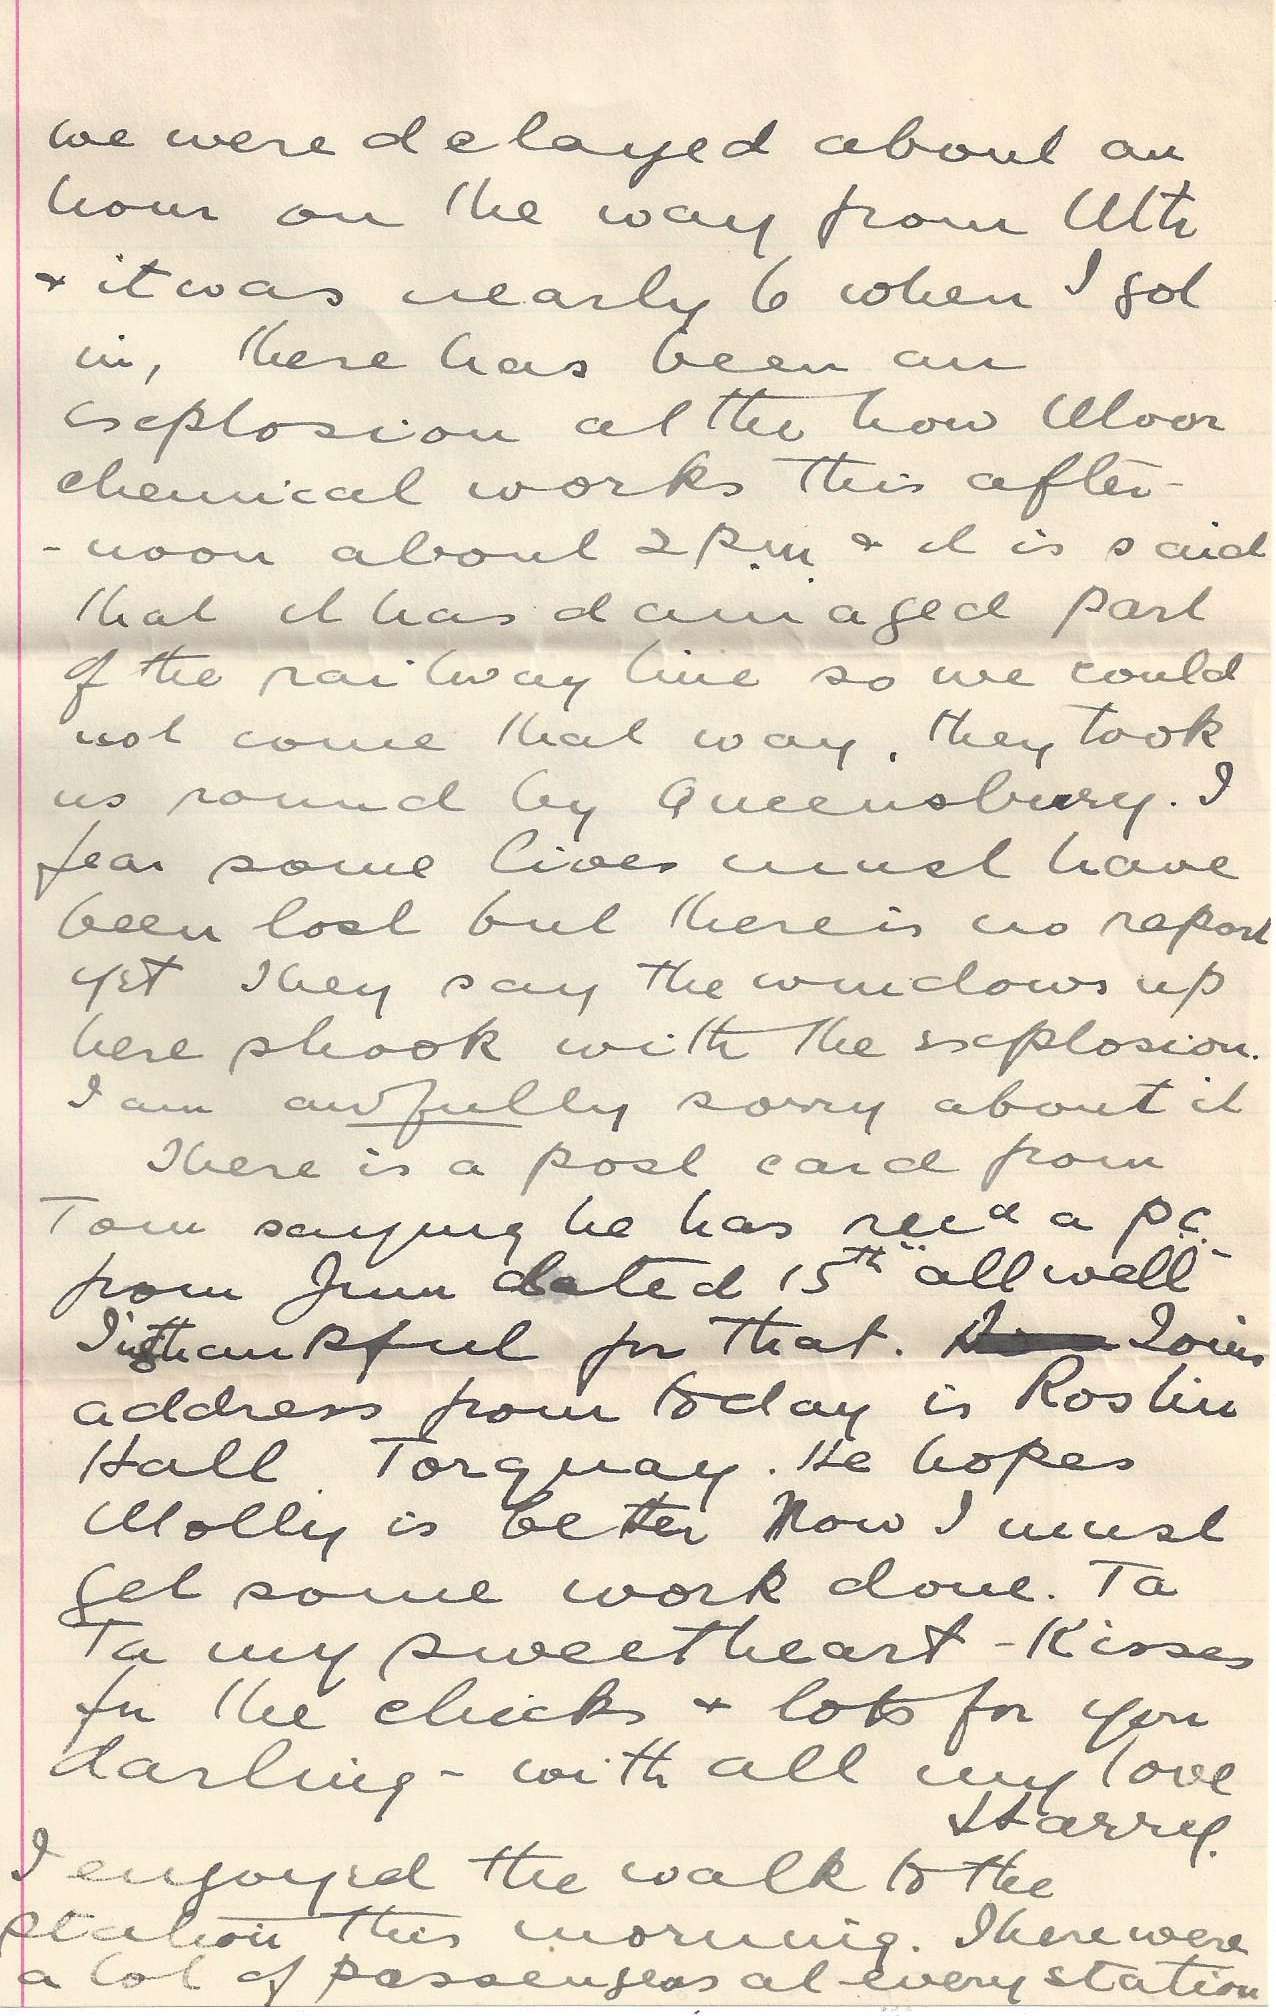 we were delayed about an
hour on the way from Mtr
& it was nearly 6 when I got
in, there has been an
explosion at the Low Moor
chemical works this after-
-noon about 2 p.m. & it is said
that it has damaged part
of the railway line so we could
not come that way, they took
us round by Queensbury. I
fear some lives must have
been lost but there is no report
yet They say the windows up
here shook with the explosion.
I am awfully sorry about it
There is a post card from
Tom saying he has recd a p.c.
from Jnun dated 15th "all well"
I'm thankful for that. Toms
address from today is Roslin
Hall Torquay. He hopes
Molly is better Now I must
get some work done. Ta
Ta my sweetheart - Kisses
for the chicks & lots for you
darling - with all my love
Harry.
I enjoyed the walk to the
station this morning. There were
a lot of passengers at every station